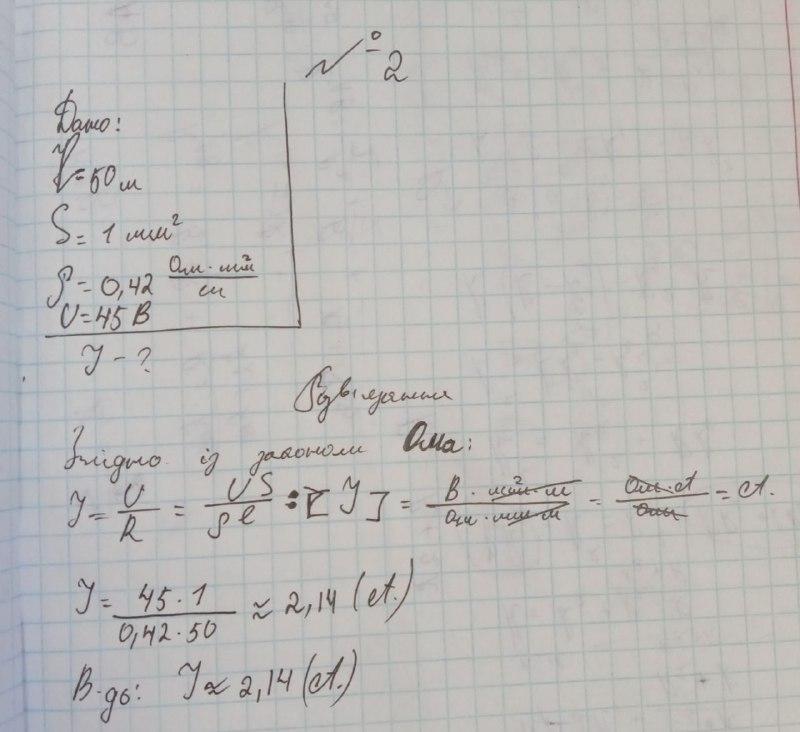 № 2
Дано:
l = 50 м
S = 1 мм²
ρ = 0,42 Ом · мм² / м
U = 45 В
I - ?
Розв'язання
Згідно із законом Ома:
I = U / R = US / ρl : [I] = В · мм² · м / Ом · мм · м = Ом · А / Ом = А.
I = 45 · 1 / 0,42 · 50 ≈ 2,14 (А.)
В-дь: I ≈ 2,14 (А.)